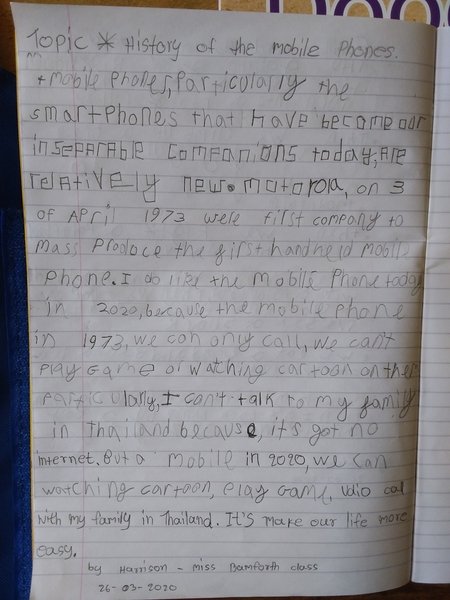 Topic * History of the mobile phones.
+ mobile phones, particularly the
smartphones that have become our
inseparable companions today, are
relatively new. motorola, on 3
of April 1973 were first company to
mass produce the first handheld mobile
phone. I do like the mobile phone today
in 2020, because the mobile phone
in 1973, we can only call, we can't
play game or watching cartoon on ther
particularly, I can't talk to my family
in thailand because, it's got no
internet. But a mobile in 2020, we can
watching cartoon, play game, vdio call
with my family in Thailand. It's make our life more
easy.
by Harrison - miss Bamforth class
26-03-2020